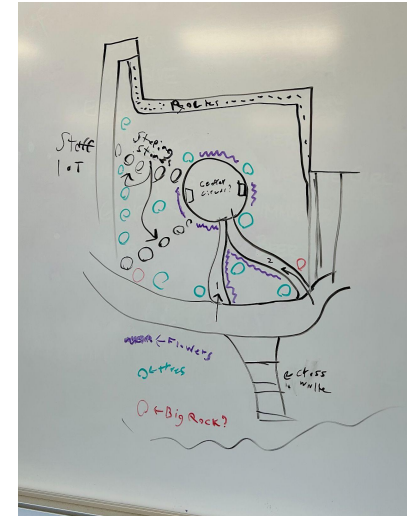 Staff
lot
Steping
Stones
Center
circle?
2
← Flowers
← trees
← Big Rock?
← Cross
walk